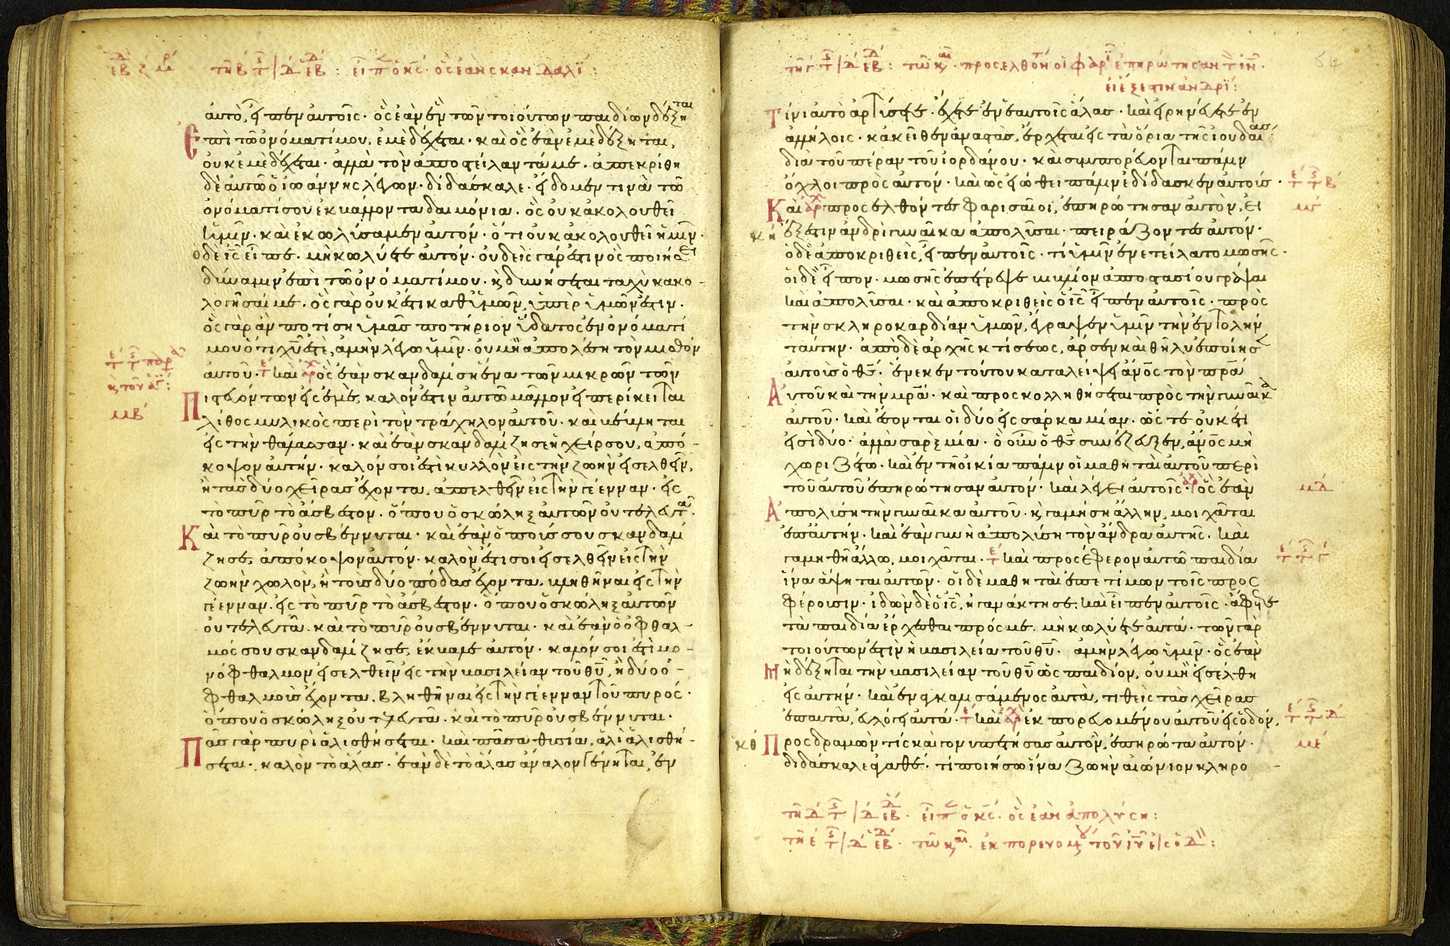 τῇ β ... εἶπ ὁ κς· ὃς ἐὰν σκανδαλί:
αὐτὸ, εἶπεν αὐτοῖς· ὃς ἐὰν ἓν τῶν τοιούτων παιδίων δέξηται
Ἐπὶ τῷ ὀνόματί μου, ἐμὲ δέχεται· καὶ ὃς ἐὰν ἐμὲ δέξηται,
οὐκ ἐμὲ δέχεται· ἀλλὰ τὸν ἀποστείλαντά με· ἀπεκρίθη
δὲ αὐτῷ ὁ ἰωάννης λέγων· διδάσκαλε· εἴδομέν τινα τῷ
ὀνόματί σου ἐκβάλλοντα δαιμόνια· ὃς οὐκ ἀκολουθεῖ
ἡμῖν· καὶ ἐκωλύσαμεν αὐτόν· ὅτι οὐκ ἀκολουθεῖ ἡμῖν·
ὁ δὲ ις εἶπε· μὴ κωλύετε αὐτόν· οὐδεὶς γάρ ἐστιν ὃς ποιήσει
δύναμιν ἐπὶ τῷ ὀνόματί μου· κ δυνήσεται ταχὺ κακο-
λογῆσαί με· ὃς γὰρ οὐκ ἔστι καθ' ὑμῶν, ὑπὲρ ὑμῶν ἐστιν·
ὃς γὰρ ἂν ποτίσῃ ὑμᾶς ποτήριον ὕδατος ἐν ὀνόματί
μου ὅτι χυ ἐστὲ, ἀμὴν λέγω ὑμῖν· οὐ μὴ ἀπολέσῃ τὸν μισθὸν
αὐτοῦ· καὶ ὃς ἐὰν σκανδαλίσῃ ἕνα τῶν μικρῶν τῶν
Πιστευόντων εἰς ἐμὲ, καλόν ἐστιν αὐτῷ μᾶλλον εἰ περίκειται
λίθος μυλικὸς περὶ τὸν τράχηλον αὐτοῦ· καὶ βέβληται
εἰς τὴν θάλασσαν· καὶ ἐὰν σκανδαλίζῃ σε ἡ χείρ σου, ἀπό-
κοψον αὐτήν· καλόν σοι ἐστὶ κυλλὸν εἰς τὴν ζωὴν εἰσελθεῖν,
ἢ τὰς δύο χεῖρας ἔχοντα, ἀπελθεῖν εἰς τὴν γέενναν· εἰς
τὸ πῦρ τὸ ἄσβεστον· ὅπου ὁ σκώληξ αὐτῶν οὐ τελευτᾷ·
Καὶ τὸ πῦρ οὐ σβέννυται· καὶ ἐὰν ὁ ποῦς σου σκανδαλί
ζῃ σε, ἀπόκοψον αὐτόν· καλόν ἐστί σοι εἰσελθεῖν εἰς τὴν
ζωὴν χωλὸν, ἢ τοὺς δύο πόδας ἔχοντα, βληθῆναι εἰς τὴν
γέενναν· εἰς τὸ πῦρ τὸ ἄσβεστον· ὅπου ὁ σκώληξ αὐτῶν
οὐ τελευτᾷ· καὶ τὸ πῦρ οὐ σβέννυται· καὶ ἐὰν ὁ ὀφθαλ-
μός σου σκανδαλίζῃ σε, ἔκβαλε αὐτόν· καλόν σοι ἐστὶ μο-
νόφθαλμον εἰσελθεῖν εἰς τὴν βασιλείαν τοῦ θυ, ἢ δύο ὀ-
φθαλμοὺς ἔχοντα, βληθῆναι εἰς τὴν γέενναν τοῦ πυρός·
ὅπου ὁ σκώληξ οὐ τελευτᾷ· καὶ τὸ πῦρ οὐ σβέννυται·
Πᾶς γὰρ πυρὶ ἁλισθήσεται· καὶ πᾶσα θυσία, ἁλὶ ἁλισθή-
σεται· καλὸν τὸ ἅλας· ἐὰν δὲ τὸ ἅλας ἄναλον γένηται, ἐν
μβ
τῶ κ. προσελθόν οἱ φαρι ἐπηρώτησαν τὸν ιν·
εἰ ἔξεστιν ἀνδρί:
Τίνι αὐτὸ ἀρτύσετε· ἔχετε ἐν ἑαυτοῖς ἅλας· καὶ εἰρηνεύετε ἐν
ἀλλήλοις· κἀκεῖθεν ἀναστὰς, ἔρχεται εἰς τὰ ὅρια τῆς ἰουδαίας
διὰ τοῦ πέραν τοῦ ἰορδάνου· καὶ συμπορεύονται πάλιν
ὄχλοι πρὸς αὐτόν· καὶ ὡς εἰώθει πάλιν ἐδίδασκεν αὐτούς·
Καὶ προσελθόντες φαρισαῖοι, ἐπηρώτησαν αὐτόν, εἰ
ἔξεστιν ἀνδρὶ γυναῖκα ἀπολῦσαι· πειράζοντες αὐτόν·
ὁ δὲ ἀποκριθεὶς, εἶπεν αὐτοῖς· τί ὑμῖν ἐνετείλατο μωσῆς·
οἱ δὲ εἶπον· μωσῆς ἐπέτρεψε βιβλίον ἀποστασίου γράψαι
καὶ ἀπολῦσαι· καὶ ἀποκριθεὶς ὁ ις εἶπεν αὐτοῖς· πρὸς
τὴν σκληροκαρδίαν ὑμῶν, ἔγραψεν ὑμῖν τὴν ἐντολὴν
ταύτην· ἀπὸ δὲ ἀρχῆς κτίσεως, ἄρσεν καὶ θῆλυ ἐποίησεν
αὐτοὺς ὁ θς· ἕνεκεν τούτου καταλείψει ἄνος τὸν πρα
Αὐτοῦ καὶ τὴν μρα· καὶ προσκολληθήσεται πρὸς τὴν γυναῖκα
αὐτοῦ· καὶ ἔσονται οἱ δύο εἰς σάρκα μίαν· ὥστε οὐκέτι
εἰσὶ δύο· ἀλλὰ σὰρξ μία· ὃ οὖν ὁ θς συνέζευξεν, ἄνος μὴ
χωριζέτω· καὶ ἐν τῇ οἰκία πάλιν οἱ μαθηταὶ αὐτοῦ περὶ
τοῦ αὐτοῦ ἐπηρώτησαν αὐτόν· καὶ λέγει αὐτοῖς· ὃς ἐὰν
Ἀπολύσῃ τὴν γυναῖκα αὐτοῦ· κ γαμήσῃ ἄλλην, μοιχᾶται
ἐπ' αὐτήν· καὶ ἐὰν γυνὴ ἀπολύσῃ τὸν ἄνδρα αὐτῆς· καὶ
γαμηθῇ ἄλλω, μοιχᾶται· καὶ προσέφερον αὐτῷ παιδία
ἵνα ἅψηται αὐτῶν· οἱ δὲ μαθηταὶ ἐπετίμων τοῖς προς
φέρουσιν· ἰδὼν δὲ ὁ ις, ἠγανάκτησε, καὶ εἶπεν αὐτοῖς· ἄφετε
τὰ παιδία ἔρχεσθαι πρός με· μὴ κωλύετε αὐτά· τῶν γὰρ
τοιούτων ἐστὶν ἡ βασιλεία τοῦ θυ· ἀμὴν λέγω ὑμῖν· ὃς ἐὰν
Μὴ δέξηται τὴν βασιλείαν τοῦ θυ ὡς παιδίον, οὐ μὴ εἰσέλθῃ
εἰς αὐτήν· καὶ ἐναγκαλισάμενος αὐτά, τιθεὶς τὰς χεῖρας
ἐπ' αὐτά, εὐλόγει αὐτά· καὶ ἐκπορευομένου αὐτοῦ εἰς ὁδόν,
Προσδραμὼν τίς καὶ γονυπετήσας αὐτὸν, ἐπηρώτα αὐτόν·
διδάσκαλε ἀγαθέ· τί ποιήσω ἵνα ζωὴν αἰώνιον κληρο-
με
εἶπ ὁ κς· ὃς ἐὰν ἀπολύσῃ:
ἐκπορευομ τοῦ ιυ εἰς ὁδ: